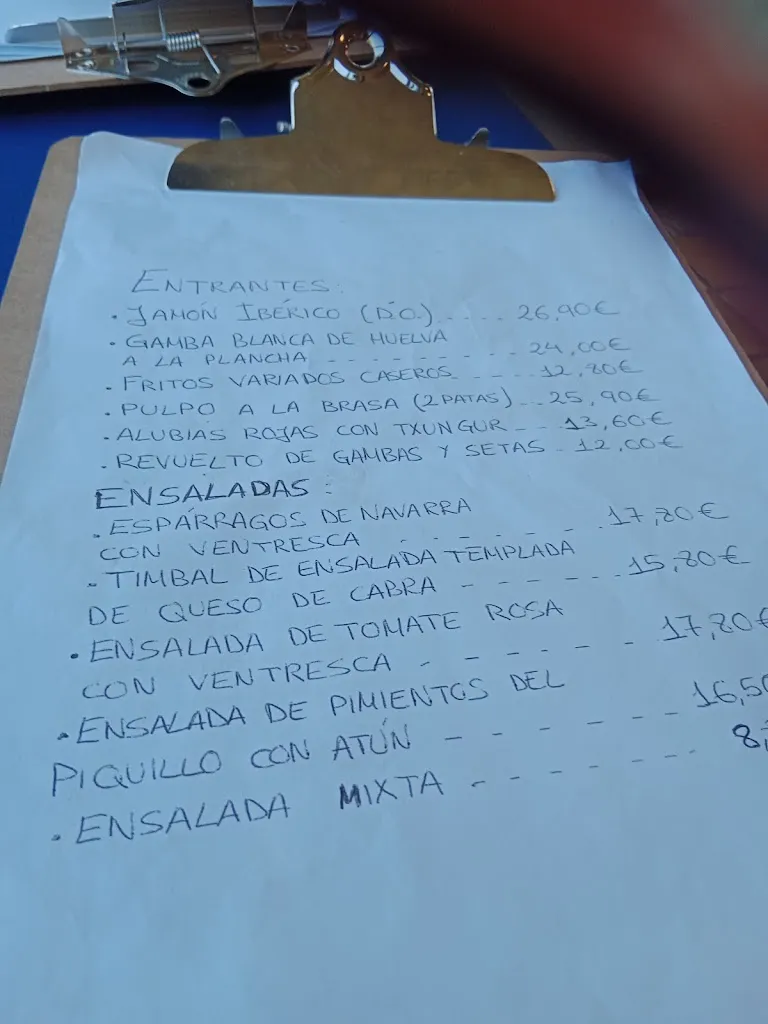 ENTRANTES:
· JAMÓN IBÉRICO (D.O.) .... 26,90€
· GAMBA BLANCA DE HUELVA
A LA PLANCHA - - - - - - - - 24,00€
· FRITOS VARIADOS CASEROS - - - 12,80€
· PULPO A LA BRASA (2 PATAS) - - 25,90€
· ALUBIAS ROJAS CON TXUNGUR - - 13,60€
· REVUELTO DE GAMBAS Y SETAS - 12,00€
ENSALADAS:
· ESPÁRRAGOS DE NAVARRA
CON VENTRESCA - - - - - - 17,80€
· TIMBAL DE ENSALADA TEMPLADA
DE QUESO DE CABRA - - - - - - 15,80€
· ENSALADA DE TOMATE ROSA
CON VENTRESCA - - - - - - 17,80€
· ENSALADA DE PIMIENTOS DEL
PIQUILLO CON ATÚN - - - - - - 16,50
· ENSALADA MIXTA - - - - - - - 8,